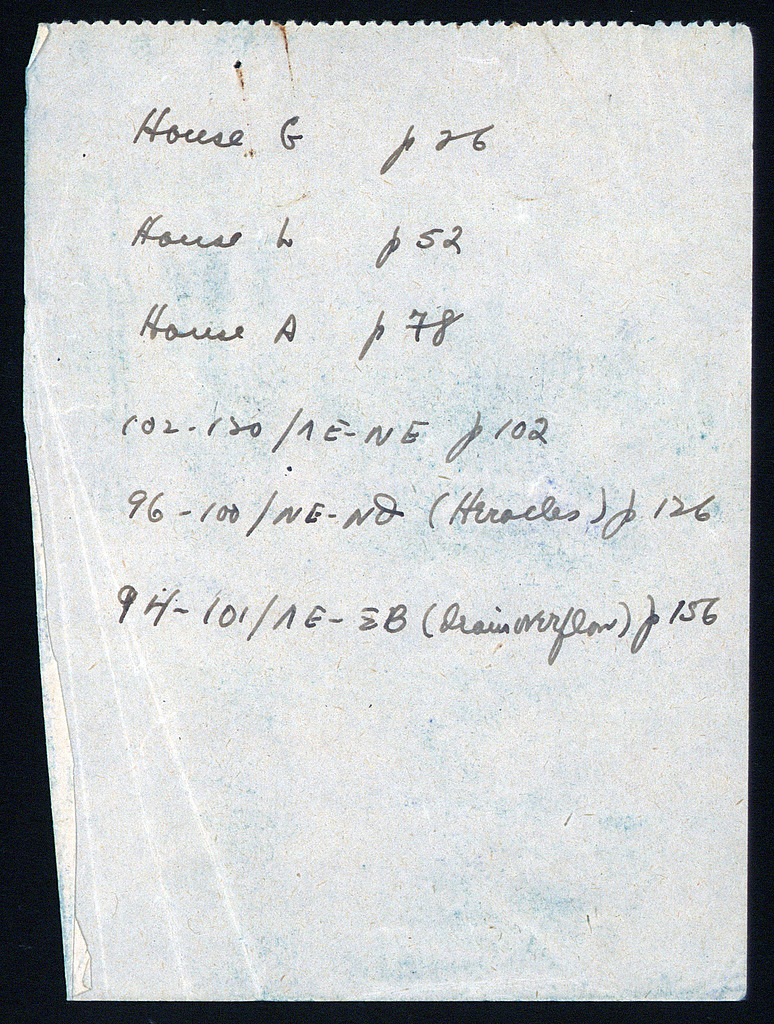 House G p 26
House L p 52
House A p 78
102-120/ΛΕ-ΝΕ p 102
96-100/ΝΕ-ΝΘ (Heracles) p 126
94-101/ΛΕ-ΞΒ (Drain overflow) p 156